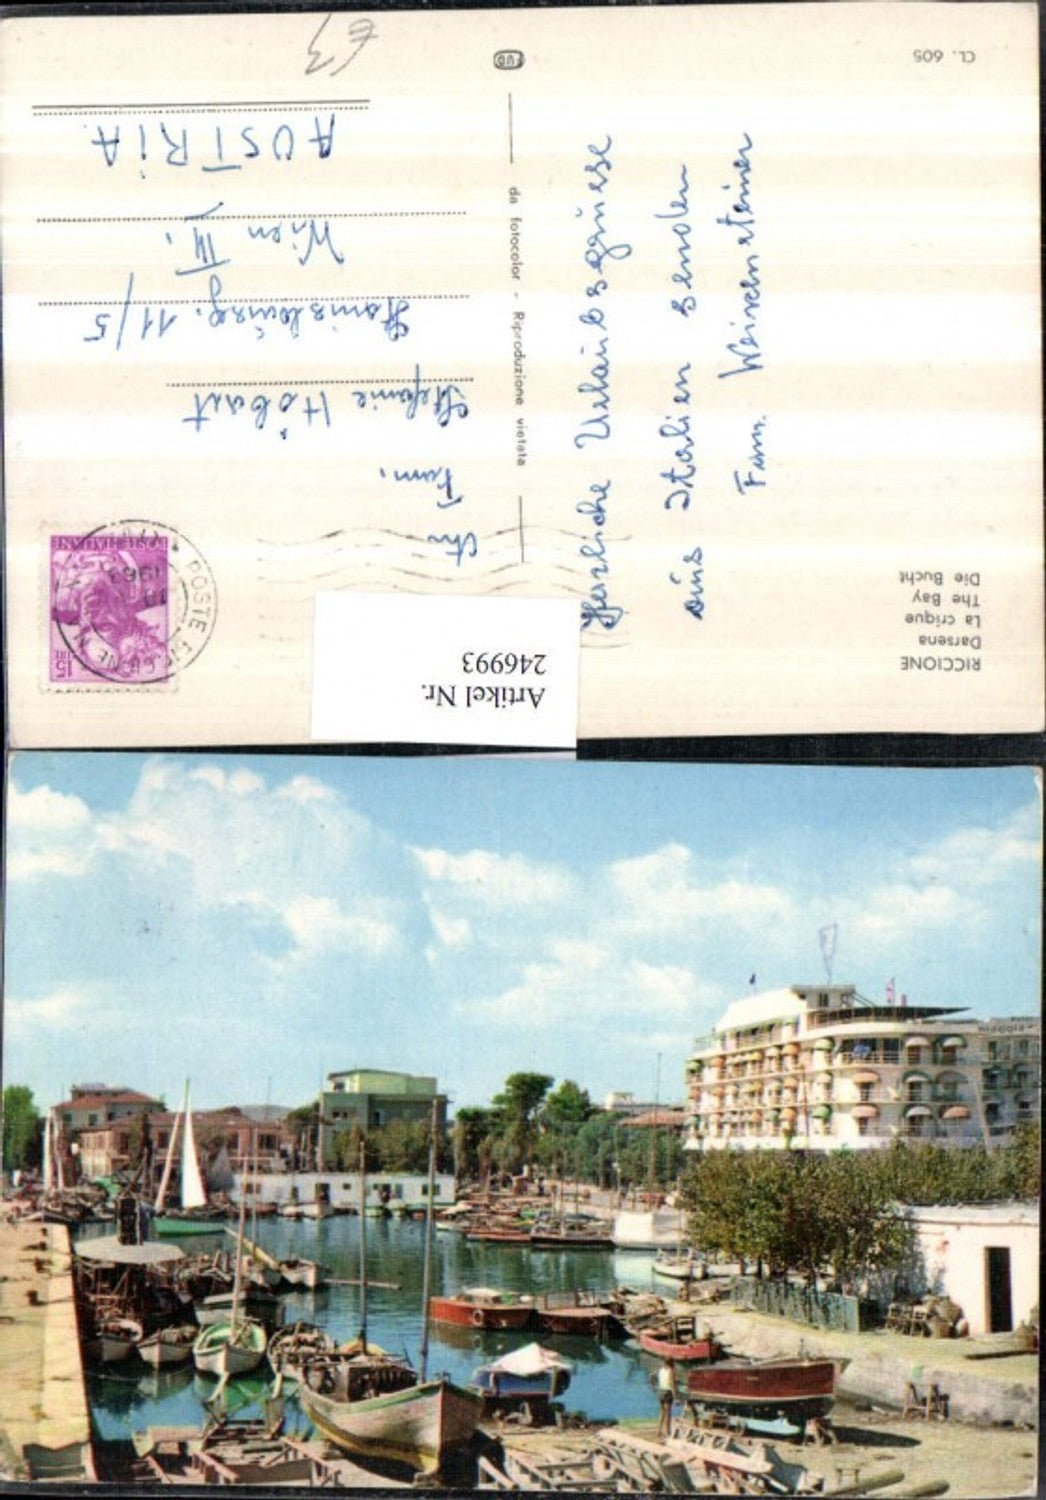 RICCIONE
Darsena
La crique
The Bay
Die Bucht
Herzliche Urlaubsgrüsse
aus Italien senden
Fam.
An
Fam.
Stefanie
11/5
Wien III.
AUSTRIA.
da fotocolor - Riproduzione vietata
CL. 605
€3
Artikel Nr.
246993
POSTE ITALIANE
LIRE 15
1963